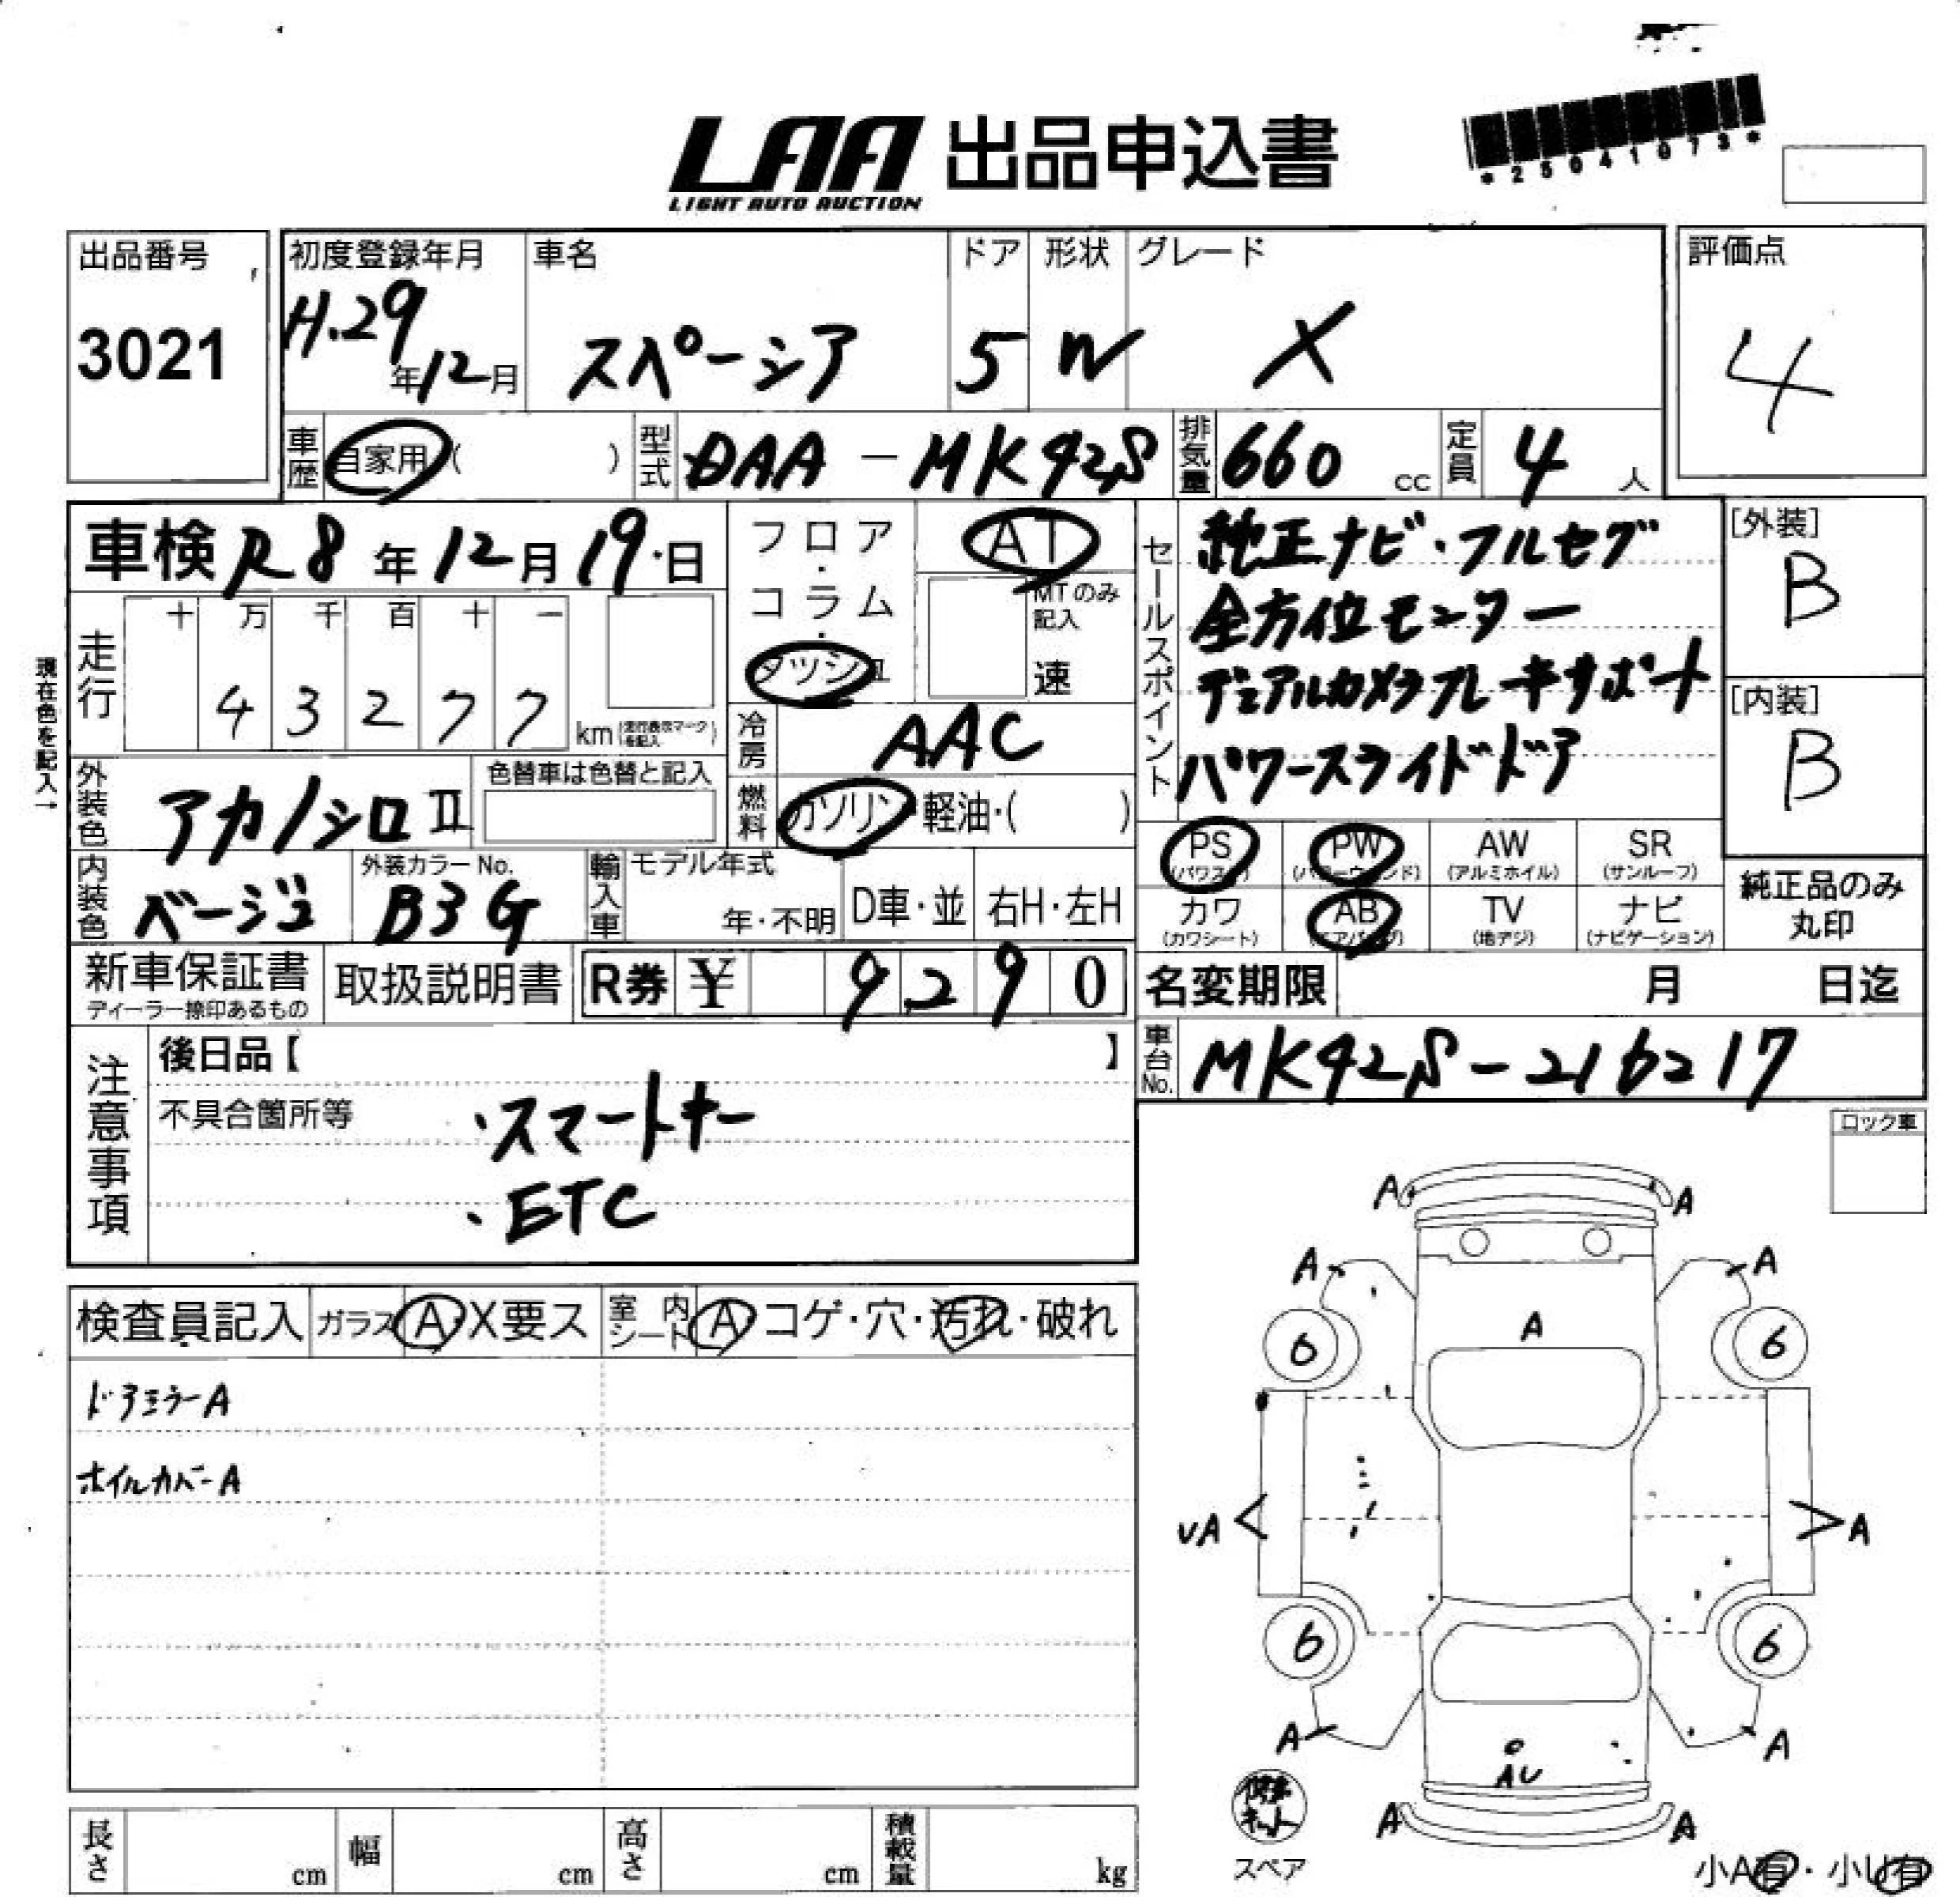 LAA 出品申込書
LIGHT AUTO AUCTION
*25041073*
出品番号
3021
初度登録年月
H.29年12月
車名
スペーシア
ドア
5
形状
W
グレード
X
評価点
4
車歴 自家用( )
型式 DAA-MK42S
排気量 660 cc
定員 4 人
車検 R8年12月19日
フロア・コラム・ダッシュ
AT
MTのみ記入
速
セールスポイント
純正ナビ・フルセグ
全方位モニター
デュアルカメラブレーキサポート
パワースライドドア
[外装]
B
[内装]
B
現在色を記入→
走行
十 万 千 百 十 一
4 3 2 7 7
km(走行表示マークを記入)
冷房 AAC
外装色 アカ/シロⅡ
色替車は色替と記入
燃料 ガソリン・軽油・( )
内装色 ベージュ
外装カラーNo.
B3G
輸入車 モデル年式
年・不明
D車・並
右H・左H
PS (パワステ)
PW (パワーウィンド)
AW (アルミホイル)
SR (サンルーフ)
カワ (カワシート)
AB (エアバッグ)
TV (地デジ)
ナビ (ナビゲーション)
純正品のみ
丸印
新車保証書
ディーラー捺印あるもの
取扱説明書
R券 ¥ 9290
名変期限 月 日迄
車台No. MK42S-216217
注意事項
後日品【 】
不具合箇所等
・スマートキー
・ETC
ロック車
検査員記入
ガラス A・X要ス
室内シート A コゲ・穴・汚れ・破れ
ドアミラーA
ホイルカバーA
A A
A A
6 A 6
UA A
6 6
A A
AU
A A
スペア
小A有・小U有
長さ cm
幅 cm
高さ cm
積載量 kg